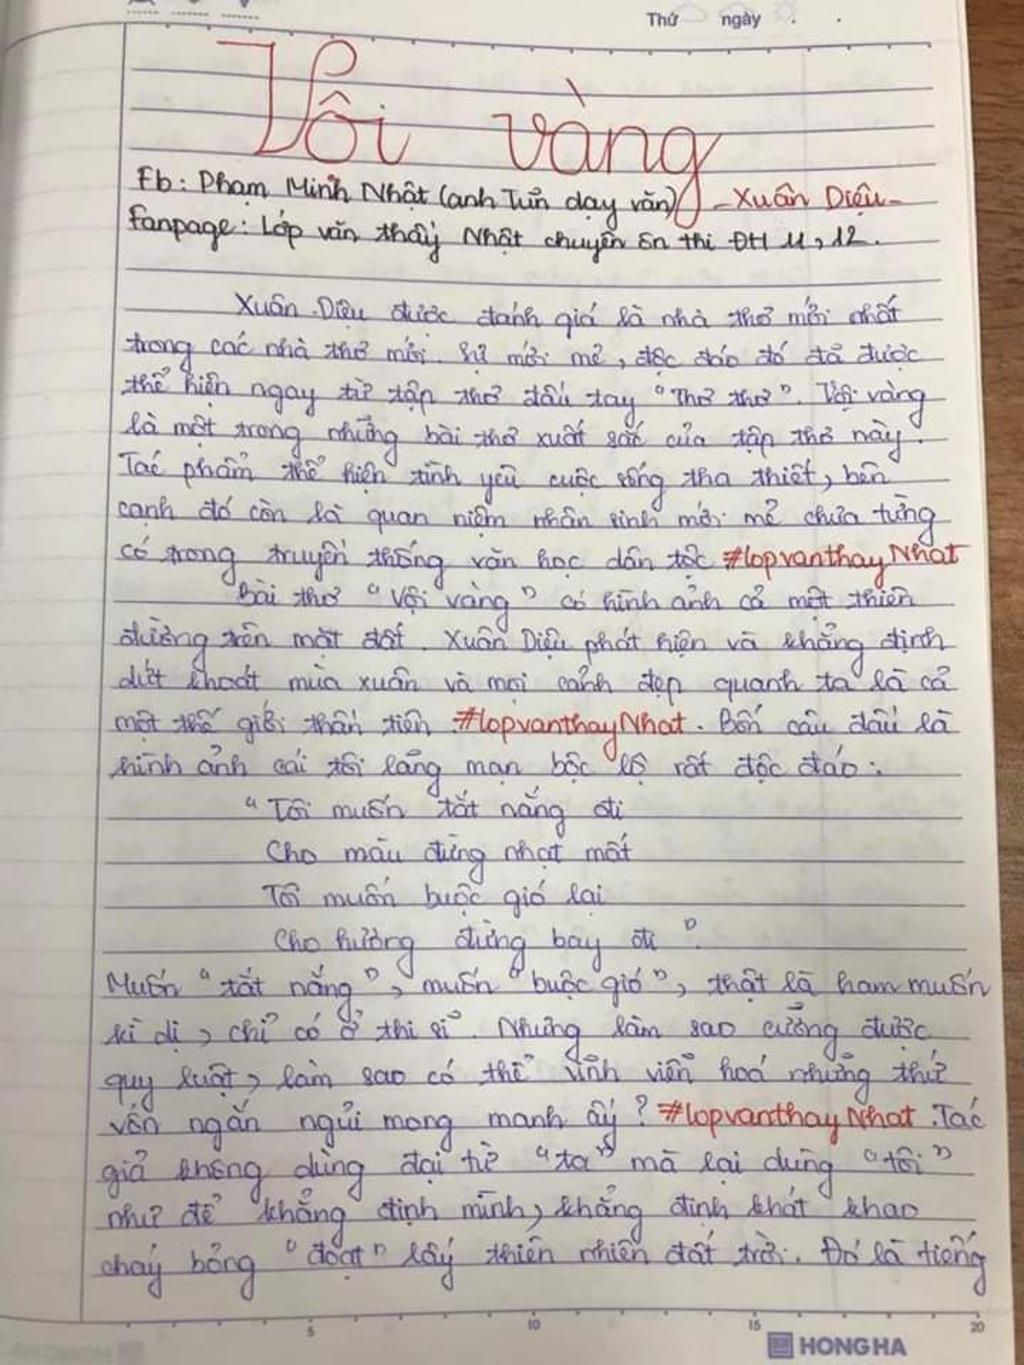 Thứ ngày
Vội vàng
Fb: Phạm Minh Nhật (anh Tũn dạy văn) - Xuân Diệu -
Fanpage: Lớp văn thầy Nhật chuyên ôn thi ĐH 11, 12.
Xuân Diệu được đánh giá là nhà thơ mới nhất
trong các nhà thơ mới. Sự mới mẻ, độc đáo đó đã được
thể hiện ngay từ tập thơ đầu tay "Thơ thơ". Vội vàng
là một trong những bài thơ xuất sắc của tập thơ này.
Tác phẩm thể hiện tình yêu cuộc sống tha thiết, bên
cạnh đó còn là quan niệm nhân sinh mới mẻ chưa từng
có trong truyền thống văn học dân tộc #lopvanthayNhat
Bài thơ "Vội vàng" có hình ảnh cả một thiên
đường trên mặt đất. Xuân Diệu phát hiện và khẳng định
dứt khoát mùa xuân và mọi cảnh đẹp quanh ta là cả
một thế giới thần tiên #lopvanthayNhat. Bốn câu đầu là
hình ảnh cái tôi lãng mạn bộc lộ rất độc đáo:
"Tôi muốn tắt nắng đi
Cho màu đừng nhạt mất
Tôi muốn buộc gió lại
Cho hương đừng bay đi".
Muốn "tắt nắng", muốn "buộc gió", thật là ham muốn
kì dị, chỉ có ở thi sĩ. Nhưng làm sao cưỡng được
quy luật, làm sao có thể vĩnh viễn hoá những thứ
vốn ngắn ngủi mong manh ấy? #lopvanthayNhat. Tác
giả không dùng đại từ "ta" mà lại dùng "tôi"
như để khẳng định mình, khẳng định khát khao
cháy bỏng "đoạt" lấy thiên nhiên đất trời. Đó là tiếng
5 10 15 20
HONG HA